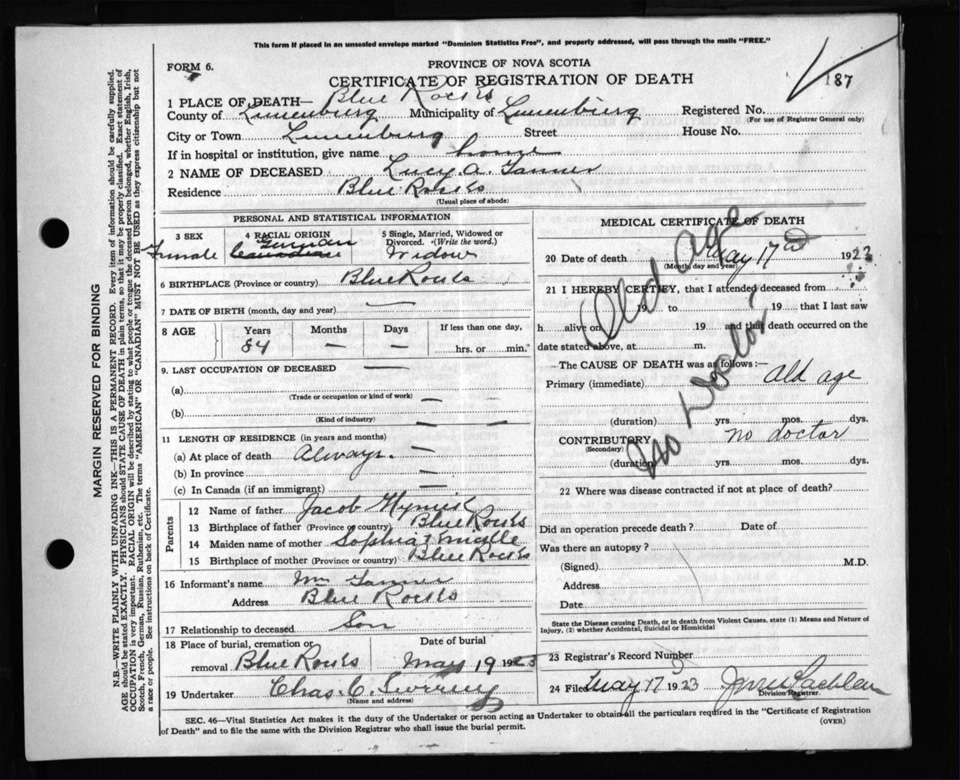 This form if placed in an unsealed envelope marked "Dominion Statistics Free", and properly addressed, will pass through the mails "FREE."
FORM 6.
PROVINCE OF NOVA SCOTIA
CERTIFICATE OF REGISTRATION OF DEATH
87
1 PLACE OF DEATH— Blue Rocks
County of Lunenburg Municipality of Lunenburg Registered No.
(For use of Registrar General only)
City or Town Lunenburg Street House No.
If in hospital or institution, give name home
2 NAME OF DECEASED Lucy A. Tanner
Residence Blue Rocks
(Usual place of abode)
MARGIN RESERVED FOR BINDING
N.B.—WRITE PLAINLY WITH UNFADING INK—THIS IS A PERMANENT RECORD. Every item of information should be carefully supplied.
AGE should be stated EXACTLY. PHYSICIANS should STATE CAUSE OF DEATH in plain terms, so that it may be properly classified. Exact statement of
OCCUPATION is very important. RACIAL ORIGIN will be described by stating to what people or tongue the deceased person belonged, whether English, Irish,
Scotch, French, German, Russian, Ruthenian, etc. The terms "AMERICAN" OR "CANADIAN" MUST NOT BE USED as they express citizenship but not
a race or people. See instructions on back of Certificate.
PERSONAL AND STATISTICAL INFORMATION
3 SEX
Female
4 RACIAL ORIGIN
German
Canadian
5 Single, Married, Widowed or
Divorced. (Write the word.)
Widow
6 BIRTHPLACE (Province or country) Blue Rocks
7 DATE OF BIRTH (month, day and year) —
8 AGE Years Months Days If less than one day,
84 — — hrs. or min.
9. LAST OCCUPATION OF DECEASED —
(a)
(Trade or occupation or kind of work) —
(b)
(Kind of industry) —
11 LENGTH OF RESIDENCE (in years and months)
(a) At place of death Always. —
(b) In province —
(c) In Canada (if an immigrant) —
Parents
12 Name of father Jacob
13 Birthplace of father (Province or country) Blue Rocks
14 Maiden name of mother Sophia
15 Birthplace of mother (Province or country) Blue Rocks
16 Informant's name Wm Tanner
Address Blue Rocks
17 Relationship to deceased Son
18 Place of burial, cremation or Date of burial
removal Blue Rocks May 19 1923
19 Undertaker Chas. C.
(Name and address)
MEDICAL CERTIFICATE OF DEATH
20 Date of death May 17th 1923
(Month, day and year)
21 I HEREBY CERTIFY, that I attended deceased from
19 to 19 that I last saw
h alive on 19 and that death occurred on the
date stated above, at m.
The CAUSE OF DEATH was as follows:—
Primary (immediate) Old age
(duration) yrs. mos. dys.
CONTRIBUTORY no doctor
(Secondary)
(duration) yrs. mos. dys.
Old Age
No Doctor
22 Where was disease contracted if not at place of death?
Did an operation precede death? Date of
Was there an autopsy?
(Signed) M.D.
Address
Date
State the Disease causing Death, or in death from Violent Causes, state (1) Means and Nature of
Injury, (2) whether Accidental, Suicidal or Homicidal
23 Registrar's Record Number 3
24 Filed May 17 1923
Division Registrar.
SEC. 46—Vital Statistics Act makes it the duty of the Undertaker or person acting as Undertaker to obtain all the particulars required in the "Certificate of Registration
of Death" and to file the same with the Division Registrar who shall issue the burial permit.
(OVER)